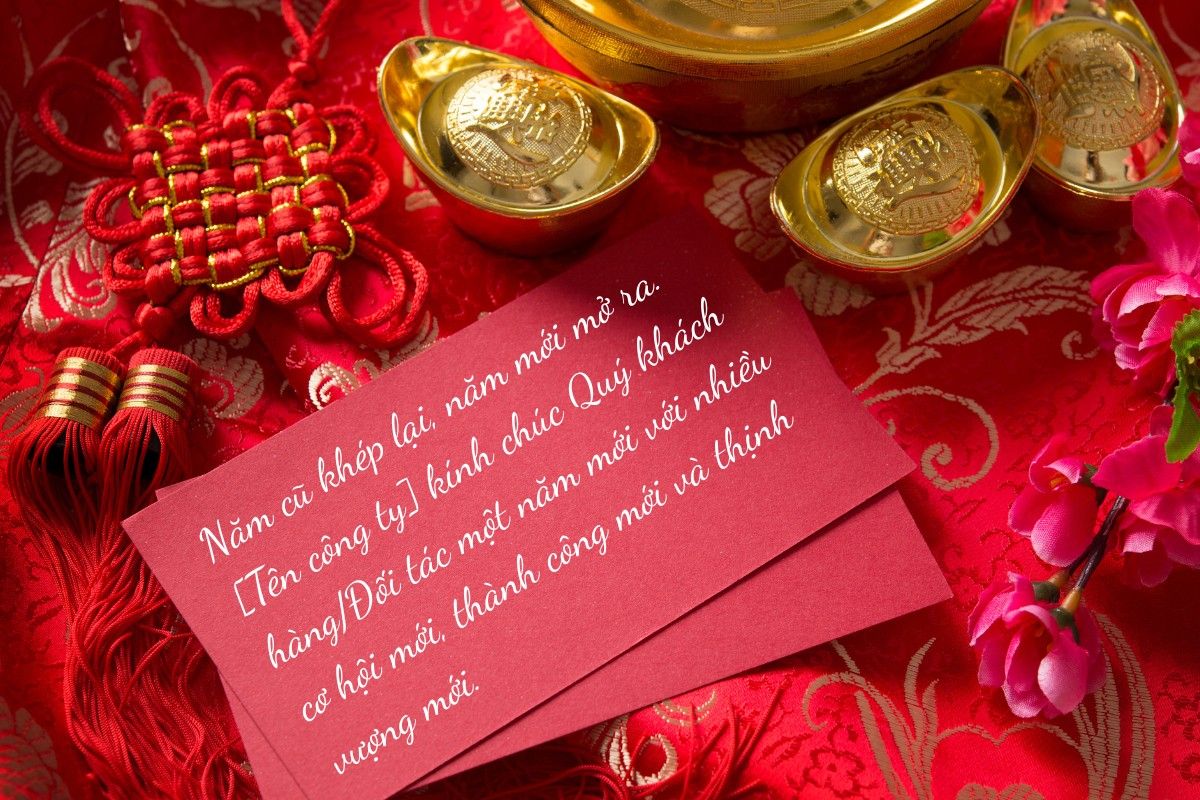 Năm cũ khép lại, năm mới mở ra.
[Tên công ty] kính chúc Quý khách
hàng/Đối tác một năm mới với nhiều
cơ hội mới, thành công mới và thịnh
vượng mới.